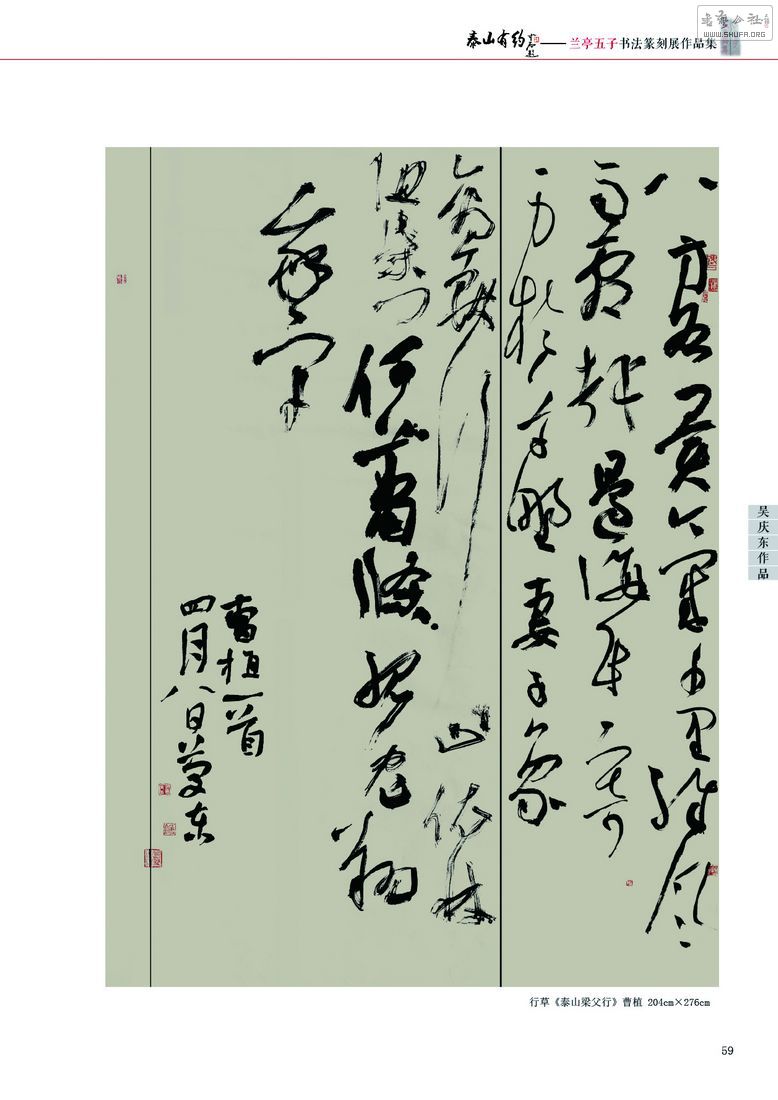 泰山有约——兰亭五子书法篆刻展作品集
WWW.SHUFA.ORG
八方各異氣千里殊風
雨劇哉邊海民寄
身於草野妻子象
禽獸行止依林
阻柴門何蕭條狐兔翔
我宇
曹植一首
四月八日慶东
吴庆东作品
行草《泰山梁父行》曹植 204cm×276cm
59